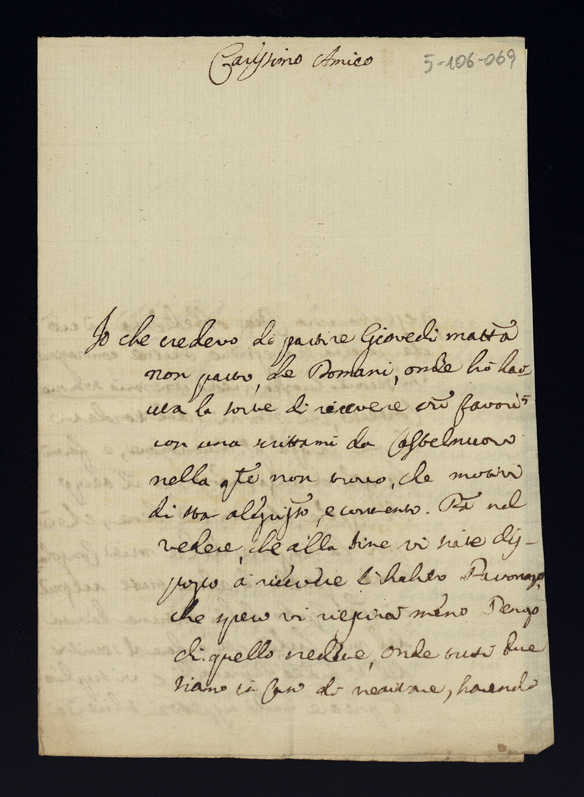 Carissimo Amico
5-106-069
Io che credevo di partire Giovedì matt.ª
non parto, che Domani, onde hò hau
uta la sorte di ricevere
con una da Castelnuovo
nella non trovo, che motivi
di star allegr, e contento. nel
vedere, che alla fine vi siate dis-
posto à ricevere l'habito Pavonazo,
che spero vi riuscirà meno
di quello credete, onde tutti due
siamo in Caso di, havendo